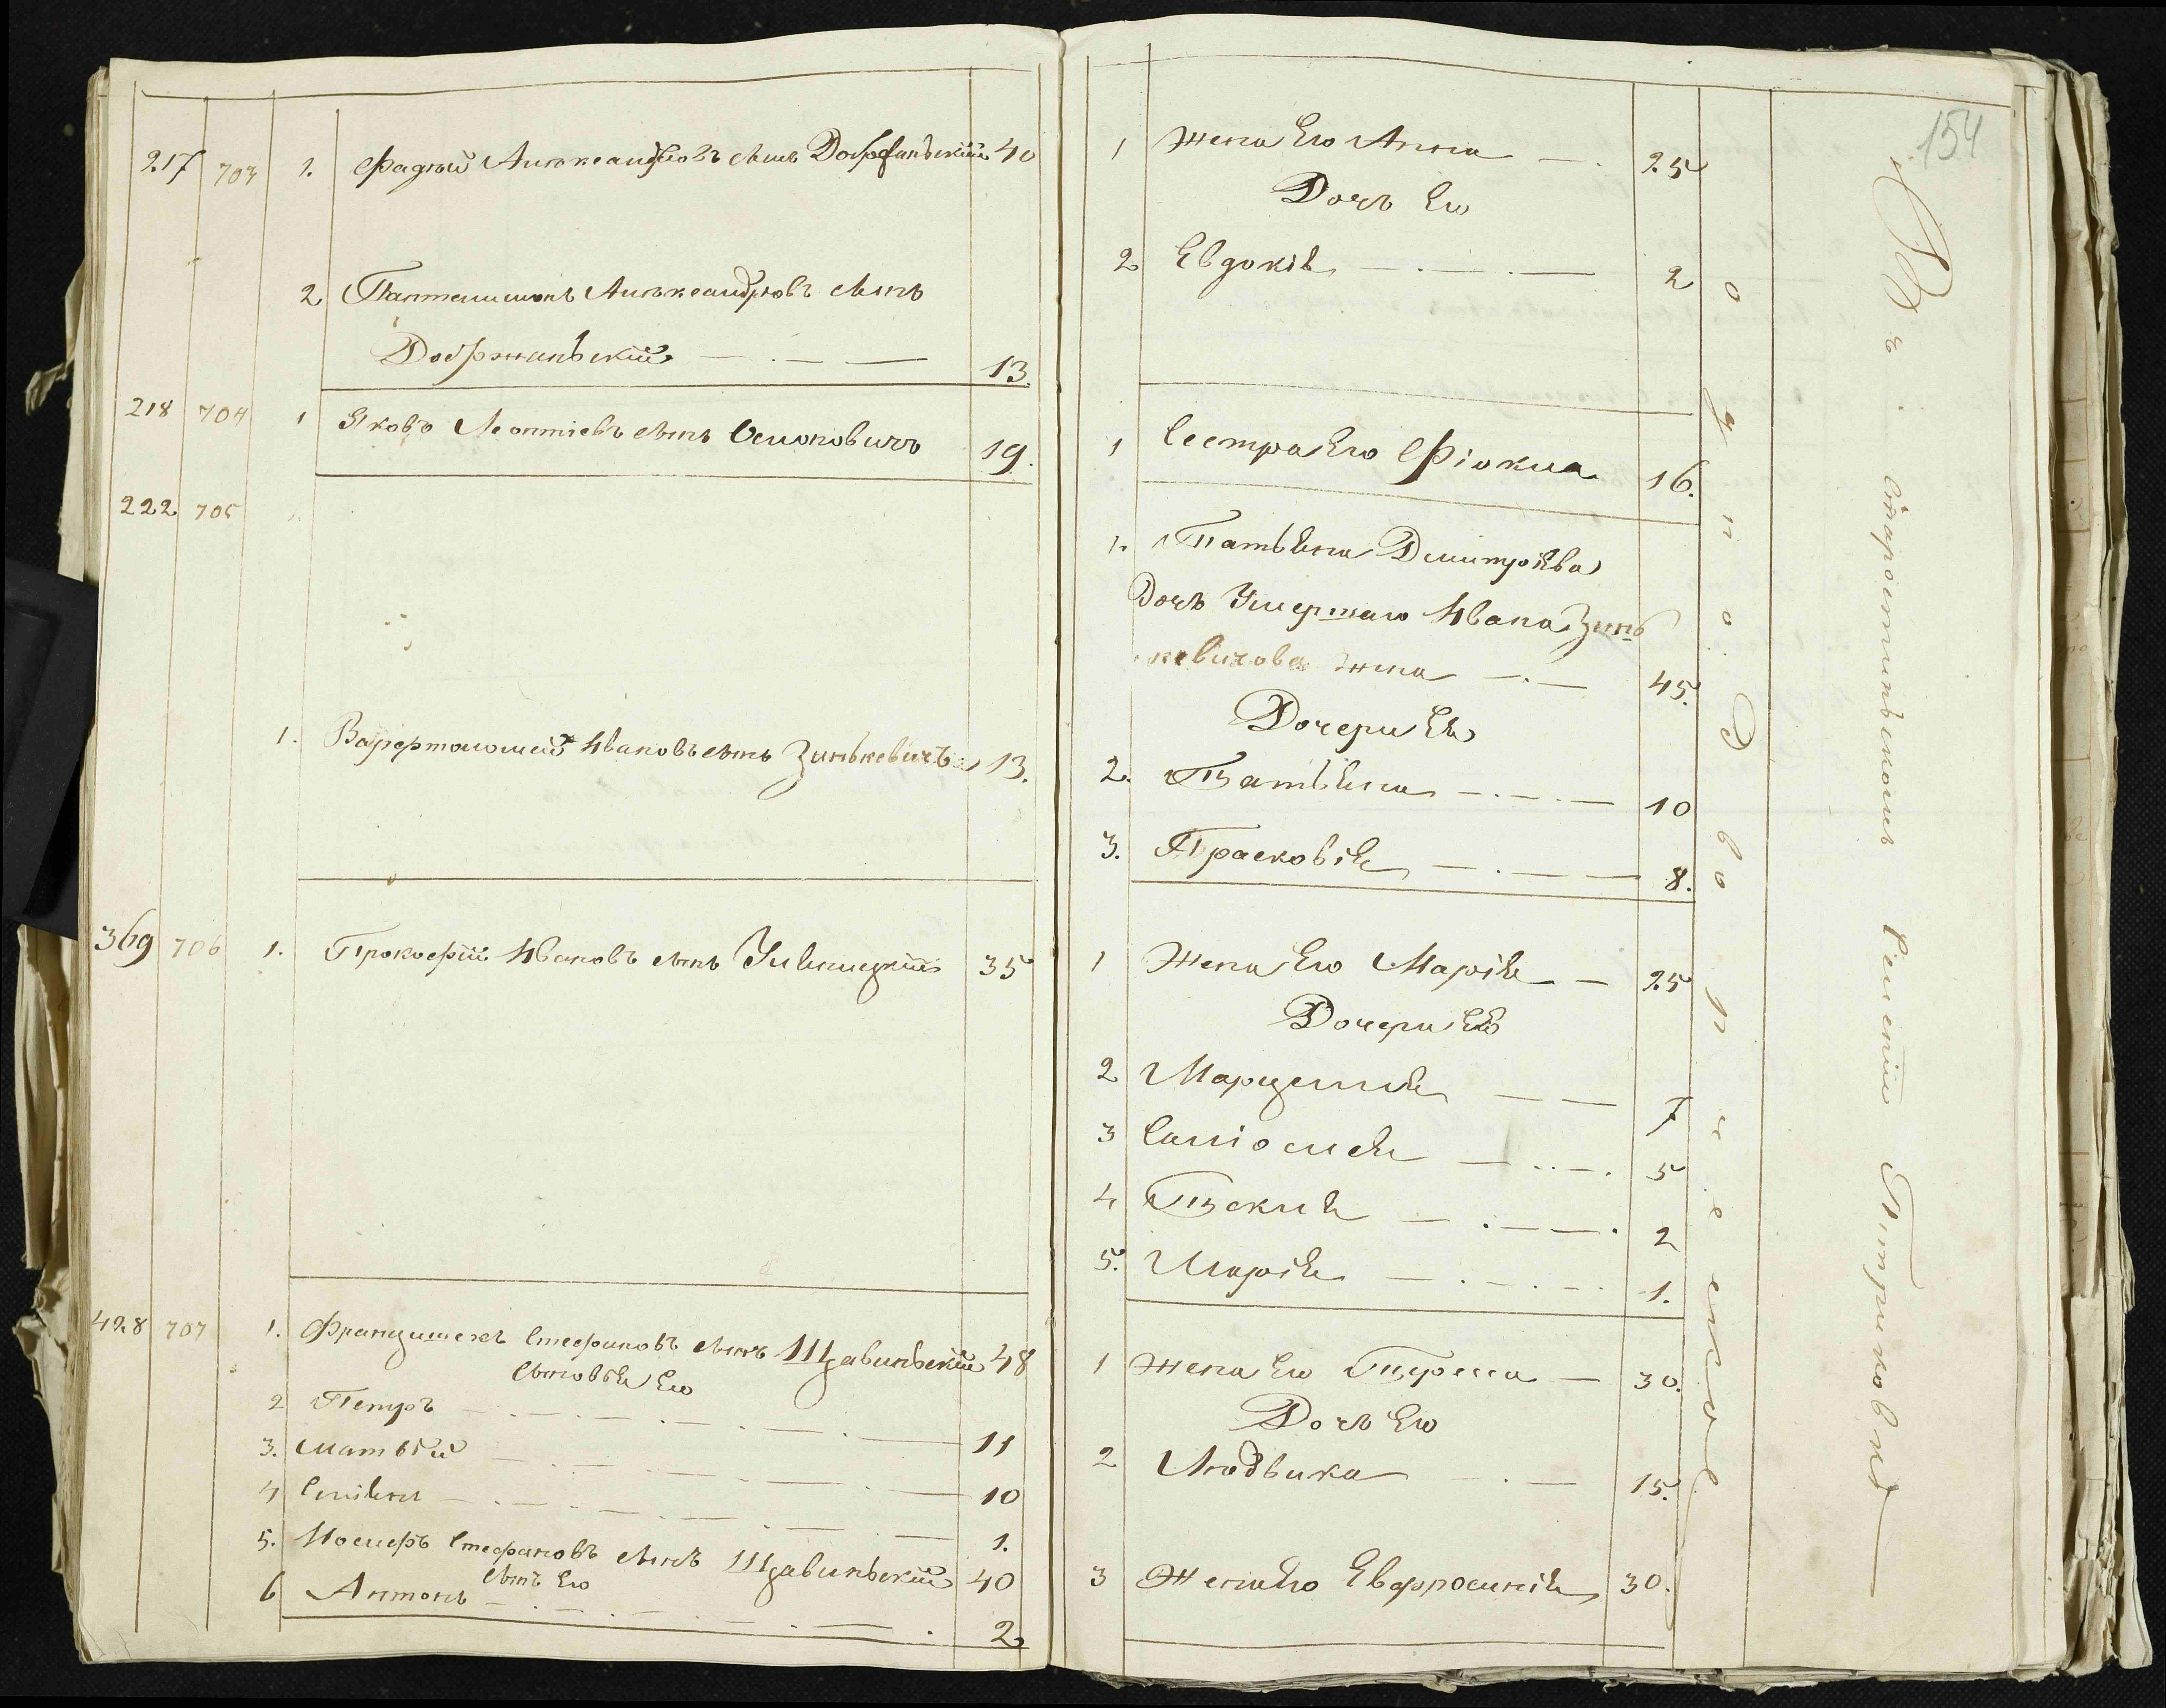 217 703 1. Фадѣй Александровъ сынъ Добржаньскій 40
2 Пантелимонъ Александровъ сынъ
Добржаньскій 13.
218 704 1 Яковъ Леонтіевъ сынъ 19.
222 705
1. Варфертоломей Ивановъ сынъ Зинькевичъ 13.
369 706 1. Прокофій Ивановъ сынъ 35
428 707 1. Францишекъ Стефановъ сынъ Щавиньскій 48
Сыновья Его
2 Петръ 11
3. Матвѣй 10
4 1.
5. Іосифъ Стефановъ сынъ Щавиньскій 40
сынъ Его
6 Антонъ 2
154
1 Жена Его Анна 25
Дочь Его
2 Евдокія 2
1 Сестра Его Фіокла 16.
1. Татьяна Дмитрова
дочь Умершаго Ивана Зинь
кевичова жена 45.
Дочери Ея
2. Татьяна 10
3. Прасковія 8.
1 Жена Его Марія 25
Дочери Его
2 Марцелля 7
3 Саліомея 5
4 Текля 2
5. Марія 1.
1 Жена Его Тереса 30.
Дочь Его
2 Людвика 15.
3 Жена Его Евфросинія 30.
Однодворческое
Въ Старостиньскомъ Селеніи Петриковкѣ